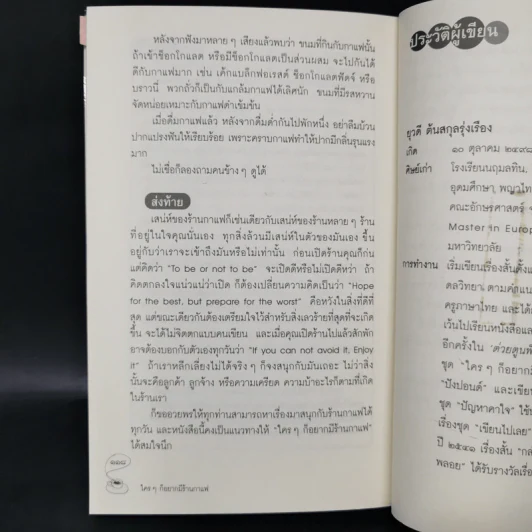 หลังจากฟังมาหลาย ๆ เสียงแล้วพบว่า ขนมที่กินกับกาแฟนั้น
ถ้าเข้าช็อกโกแลต หรือมีช็อกโกแลตเป็นส่วนผสม จะไปกันได้
ดีกับกาแฟมาก เช่น เค้กแบล็กฟอเรสต์ ช็อกโกแลตฟัดจ์ หรือ
บราวนี่ พวกถั่วก็เป็นกับแกล้มกาแฟได้เลิศนัก ขนมที่มีรสหวาน
จัดหน่อยเหมาะกับกาแฟดำเข้มข้น
เมื่อดื่มกาแฟแล้ว หลังจากดื่มด่ำกันไปพักหนึ่ง อย่าลืมบ้วน
ปากแปรงฟันให้เรียบร้อย เพราะคราบกาแฟทำให้ปากมีกลิ่นรุนแรง
มาก
ไม่เชื่อก็ลองถามคนข้าง ๆ ดูได้
ส่งท้าย
เสน่ห์ของร้านกาแฟก็เช่นเดียวกับเสน่ห์ของร้านหลาย ๆ ร้าน
ที่อยู่ในใจคุณนั่นเอง ทุกสิ่งล้วนมีเสน่ห์ในตัวของมันเอง ขึ้น
อยู่กับว่าเราจะเข้าถึงมันหรือไม่เท่านั้น ก่อนเปิดร้านคุณก็ก่น
แต่คิดว่า "To be or not to be" จะเปิดดีหรือไม่เปิดดีหว่า ถ้า
คิดตกลงใจแน่วแน่ว่าเปิด ก็ต้องเปลี่ยนความคิดเป็นว่า "Hope
for the best, but prepare for the worst" คือหวังในสิ่งที่ดีที่
สุด แต่ขณะเดียวกันต้องเตรียมใจไว้สำหรับสิ่งเลวร้ายที่สุดที่จะเกิด
ขึ้น จะได้ไม่จิตตกแบบคนเขียน และเมื่อคุณเปิดร้านไปแล้วสักพัก
อาจต้องบอกกับตัวเองทุกวันว่า "If you can not avoid it, Enjoy
it" ถ้าเราหลีกเลี่ยงไม่ได้จริง ๆ ก็จงสนุกกับมันเถอะ ไม่ว่าสิ่ง
นั้นจะคือลูกค้า ลูกจ้าง หรือความเครียด ความบ้าอะไรก็ตามที่เกิด
ในร้านเรา
ก็ขออวยพรให้ทุกท่านสามารถหาเรื่องมาสนุกกับร้านกาแฟได้
ทุกวัน และหนังสือนี้คงเป็นแนวทางให้ "ใคร ๆ ก็อยากมีร้านกาแฟ"
ได้สมใจนึก
๑๑๘
ใคร ๆ ก็อยากมีร้านกาแฟ
ประวัติผู้เขียน
ยุวดี ต้นสกุลรุ่งเรือง
เกิด ๑๐ ตุลาคม ๒๔๙๘
ศิษย์เก่า โรงเรียนนฤมลทิน,
อุดมศึกษา, พญาไท
คณะอักษรศาสตร์
Master in Europ
มหาวิทยาลัย
การทำงาน เริ่มเขียนเรื่องสั้นตั้งแ
ดลวิทยา ตามคำแน
ครูภาษาไทย และได้
เว้นไปเรียนหนังสือแล
อีกครั้งใน
ชุด "ใคร ๆ ก็อยากมี
"ปังปอนด์" และเขีย
ชุด "ปัญหาคาใจ" ใช้
เรื่องชุด "เขียนไปเลย"
ปี ๒๕๔๑ เรื่องสั้น "กล
พลอย" ได้รับรางวัลเรื่อ